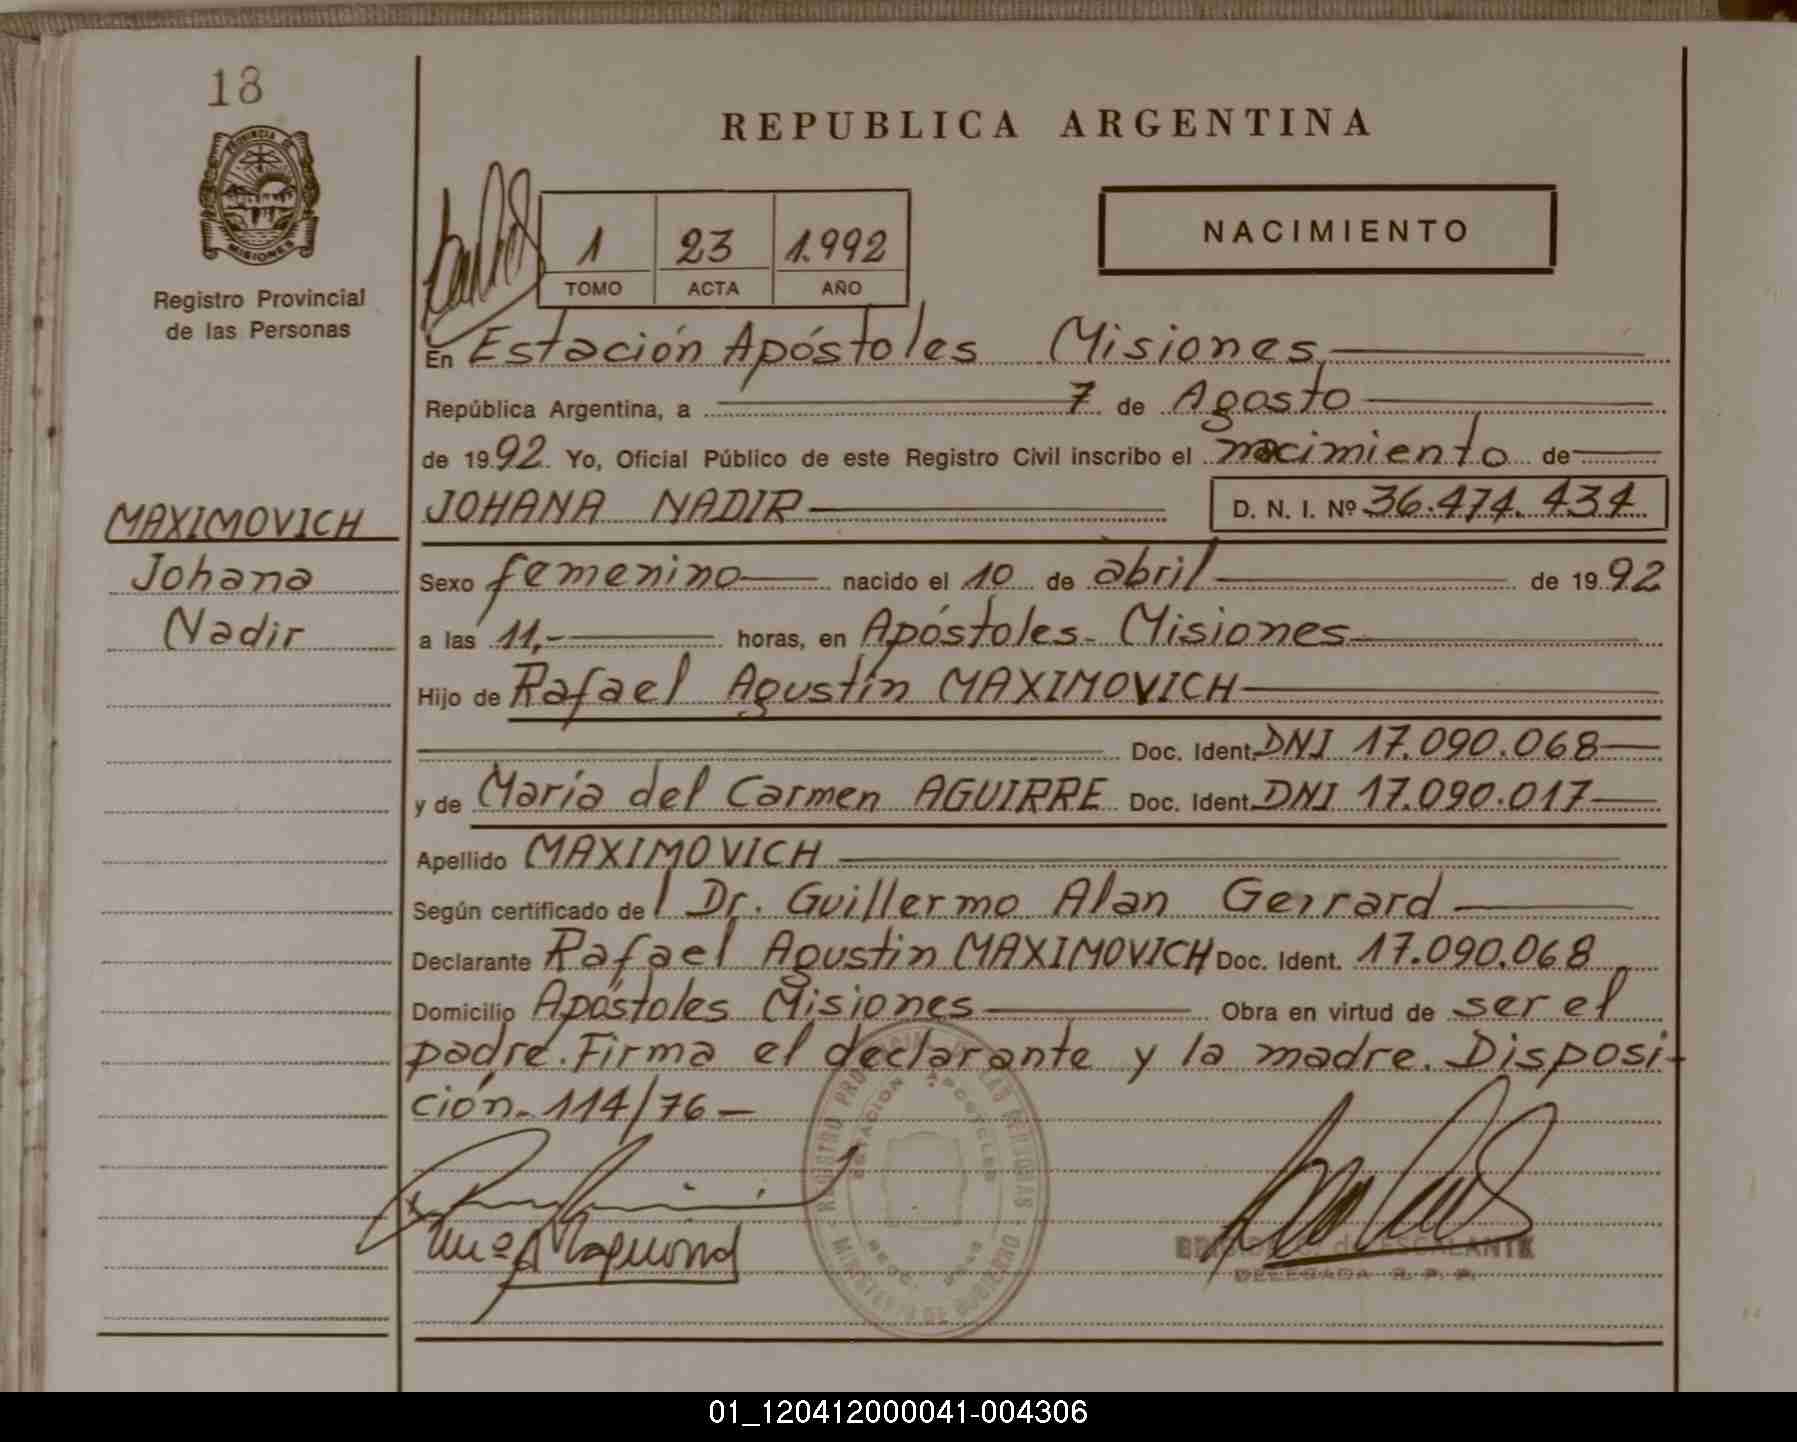 18
PROVINCIA DE
MISIONES
Registro Provincial
de las Personas
MAXIMOVICH
Johana
Nadir
REPUBLICA ARGENTINA
NACIMIENTO
1 23 1.992
TOMO ACTA AÑO
En Estación Apóstoles Misiones
República Argentina, a 7 de Agosto
de 19 92 Yo, Oficial Público de este Registro Civil inscribo el nacimiento de
JOHANA NADIR D. N. I. Nº 36.474.434
Sexo femenino nacido el 10 de abril de 19 92
a las 11,- horas, en Apóstoles - Misiones
Hijo de Rafael Agustín MAXIMOVICH
Doc. Ident. DNI 17.090.068
y de María del Carmen AGUIRRE Doc. Ident. DNI 17.090.017
Apellido MAXIMOVICH
Según certificado de l Dr. Guillermo Alan Gerrard
Declarante Rafael Agustin MAXIMOVICH Doc. Ident. 17.090.068
Domicilio Apóstoles Misiones Obra en virtud de ser el
padre. Firma el declarante y la madre. Disposi-
ción - 114/76 -
REGISTRO PROVINCIAL DE LAS PERSONAS
ESTACION APOSTOLES
MINISTERIO DE GOBIERNO
ESCALANTE
DELEGADA R. P. P.
01_120412000041-004306